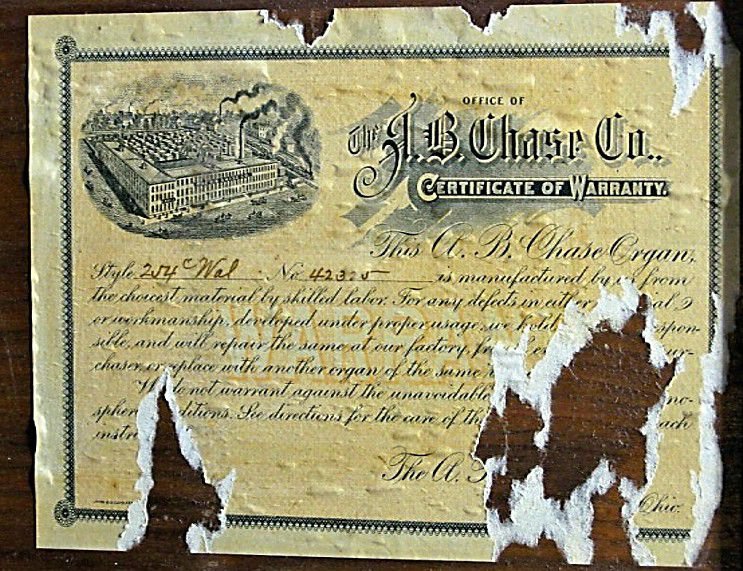 OFFICE OF
The A.B. Chase Co.,
CERTIFICATE OF WARRANTY.
This A. B. Chase Organ,
Style 254 c Wal No. 42325 is manufactured by us from
the choicest material by skilled labor. For any defects in either al
or workmanship, developed under proper usage, we hold respon-
sible, and will repair the same at our factory, fr pur-
chaser, or replace with another organ of the same
do not warrant against the unavoidable mo-
spher ditions. See directions for the care of th ach
instr
The A. Ohio.